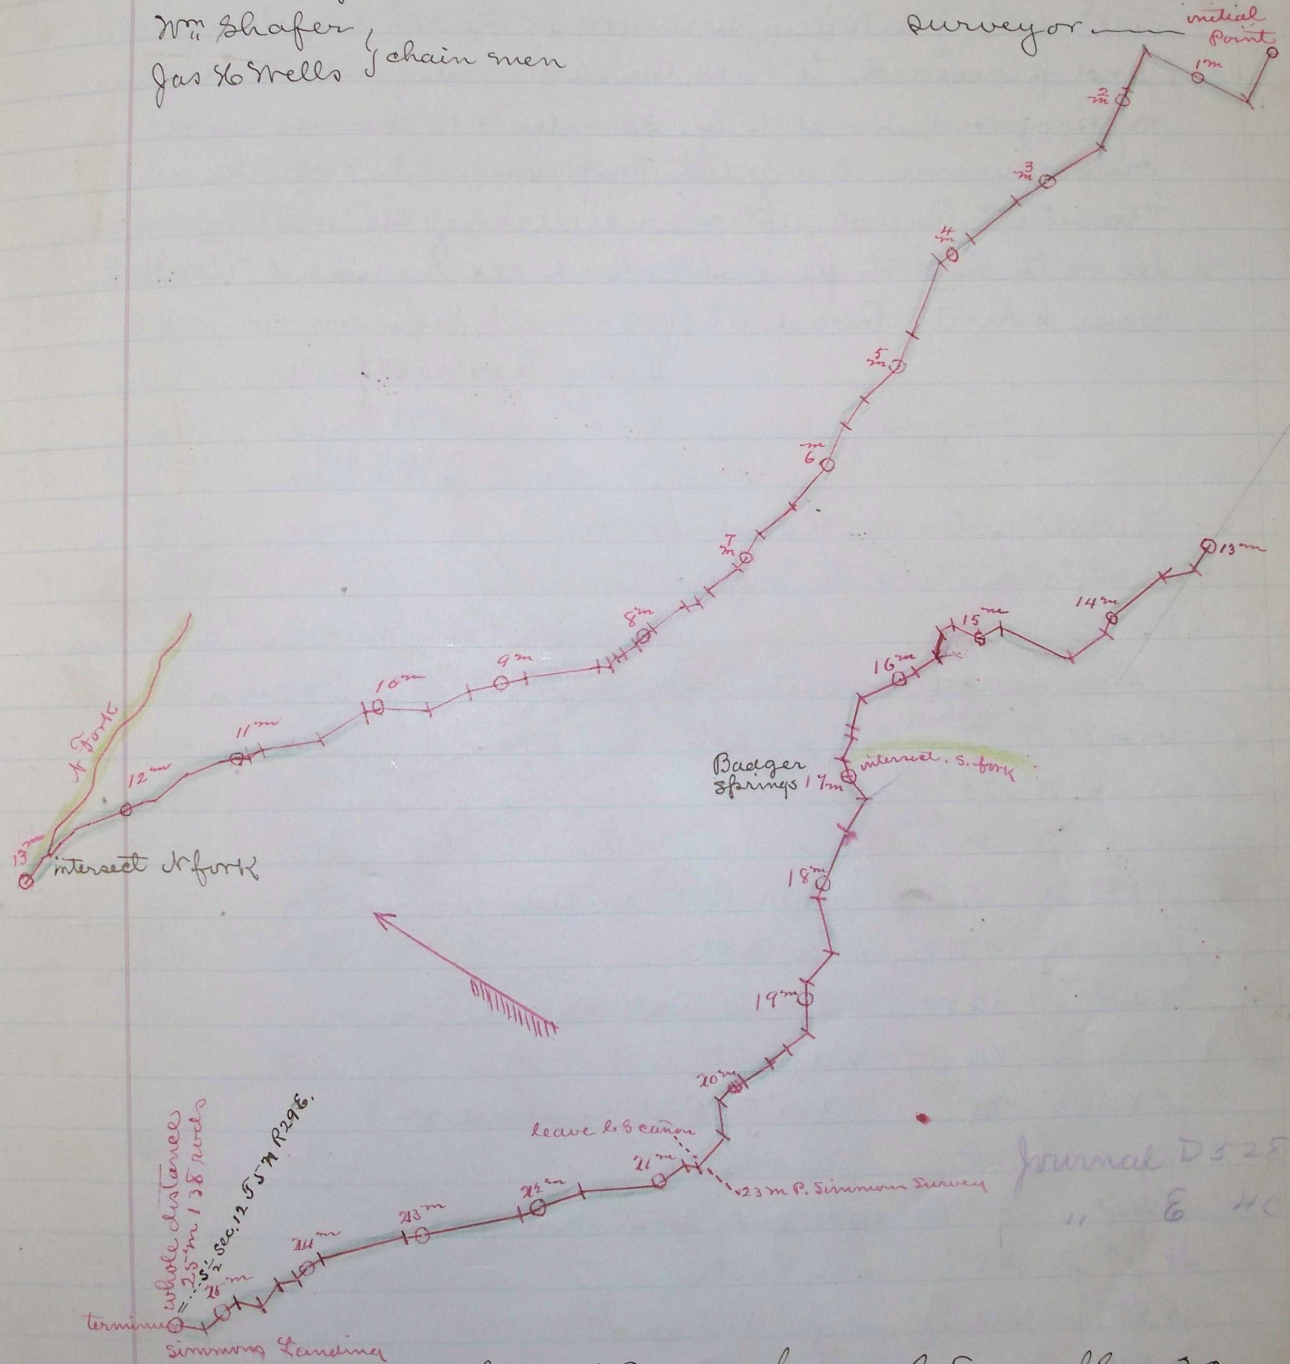 Wm Shafer
Jas H Wells } chain men
surveyor
initial
Point
1m
2
m
3
m
4
m
5
m
m
6
7
m
8m
9m
10m
11m
12m
13m
N Fork
intersect N fork
13m
14m
15m
16m
Badger
Springs
17m
intersect. S. fork
18m
19m
20m
leave L S cañon
21m
23 m P. Simmons Survey
22m
23m
24m
25m
whole distance
25m 138 rods
S ½ Sec. 12 T 5 N R 29 E.
terminus
Simmons Landing
Journal D 528
" E 40